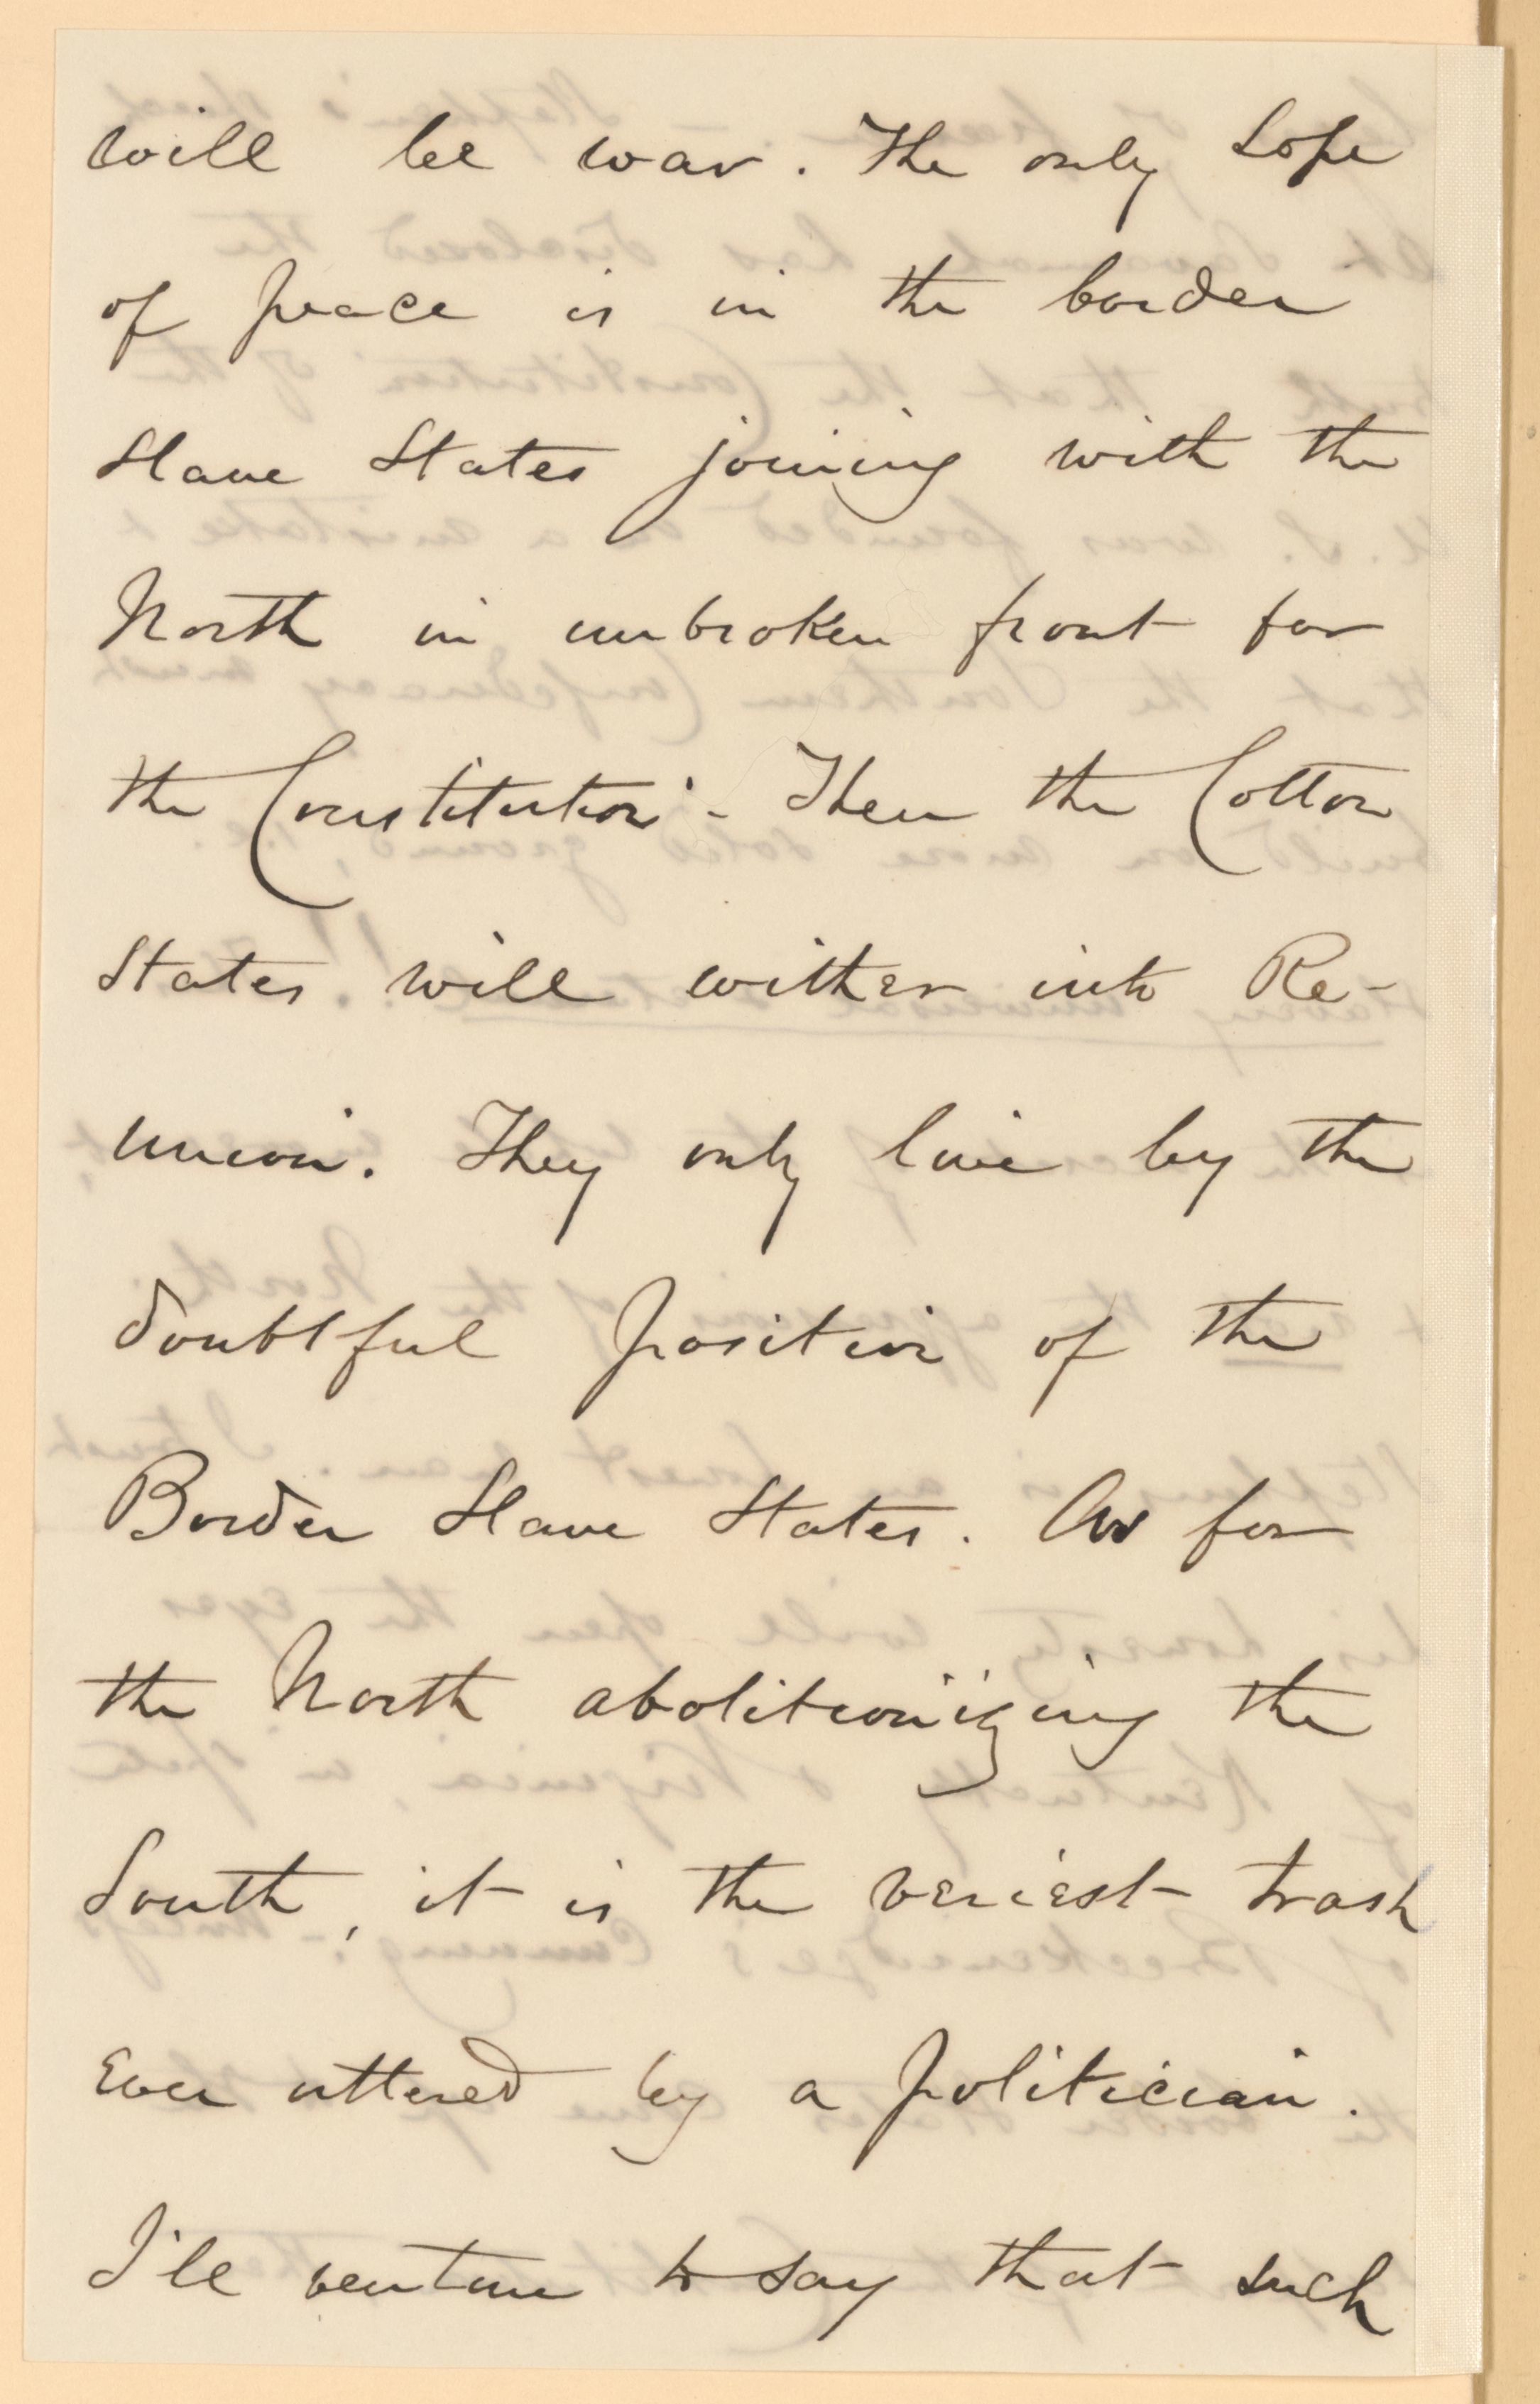 will be war. The only hope
of peace is in the border
Slave States joining with the
North in unbroken front for
the Constitution - Then the Cotton
States will wither into Re-
union. They only live by the
doubtful position of the
Border Slave States. As for
the North abolitionizing the
South, it is the veriest trash
ever uttered by a politician.
I'll venture to say that such